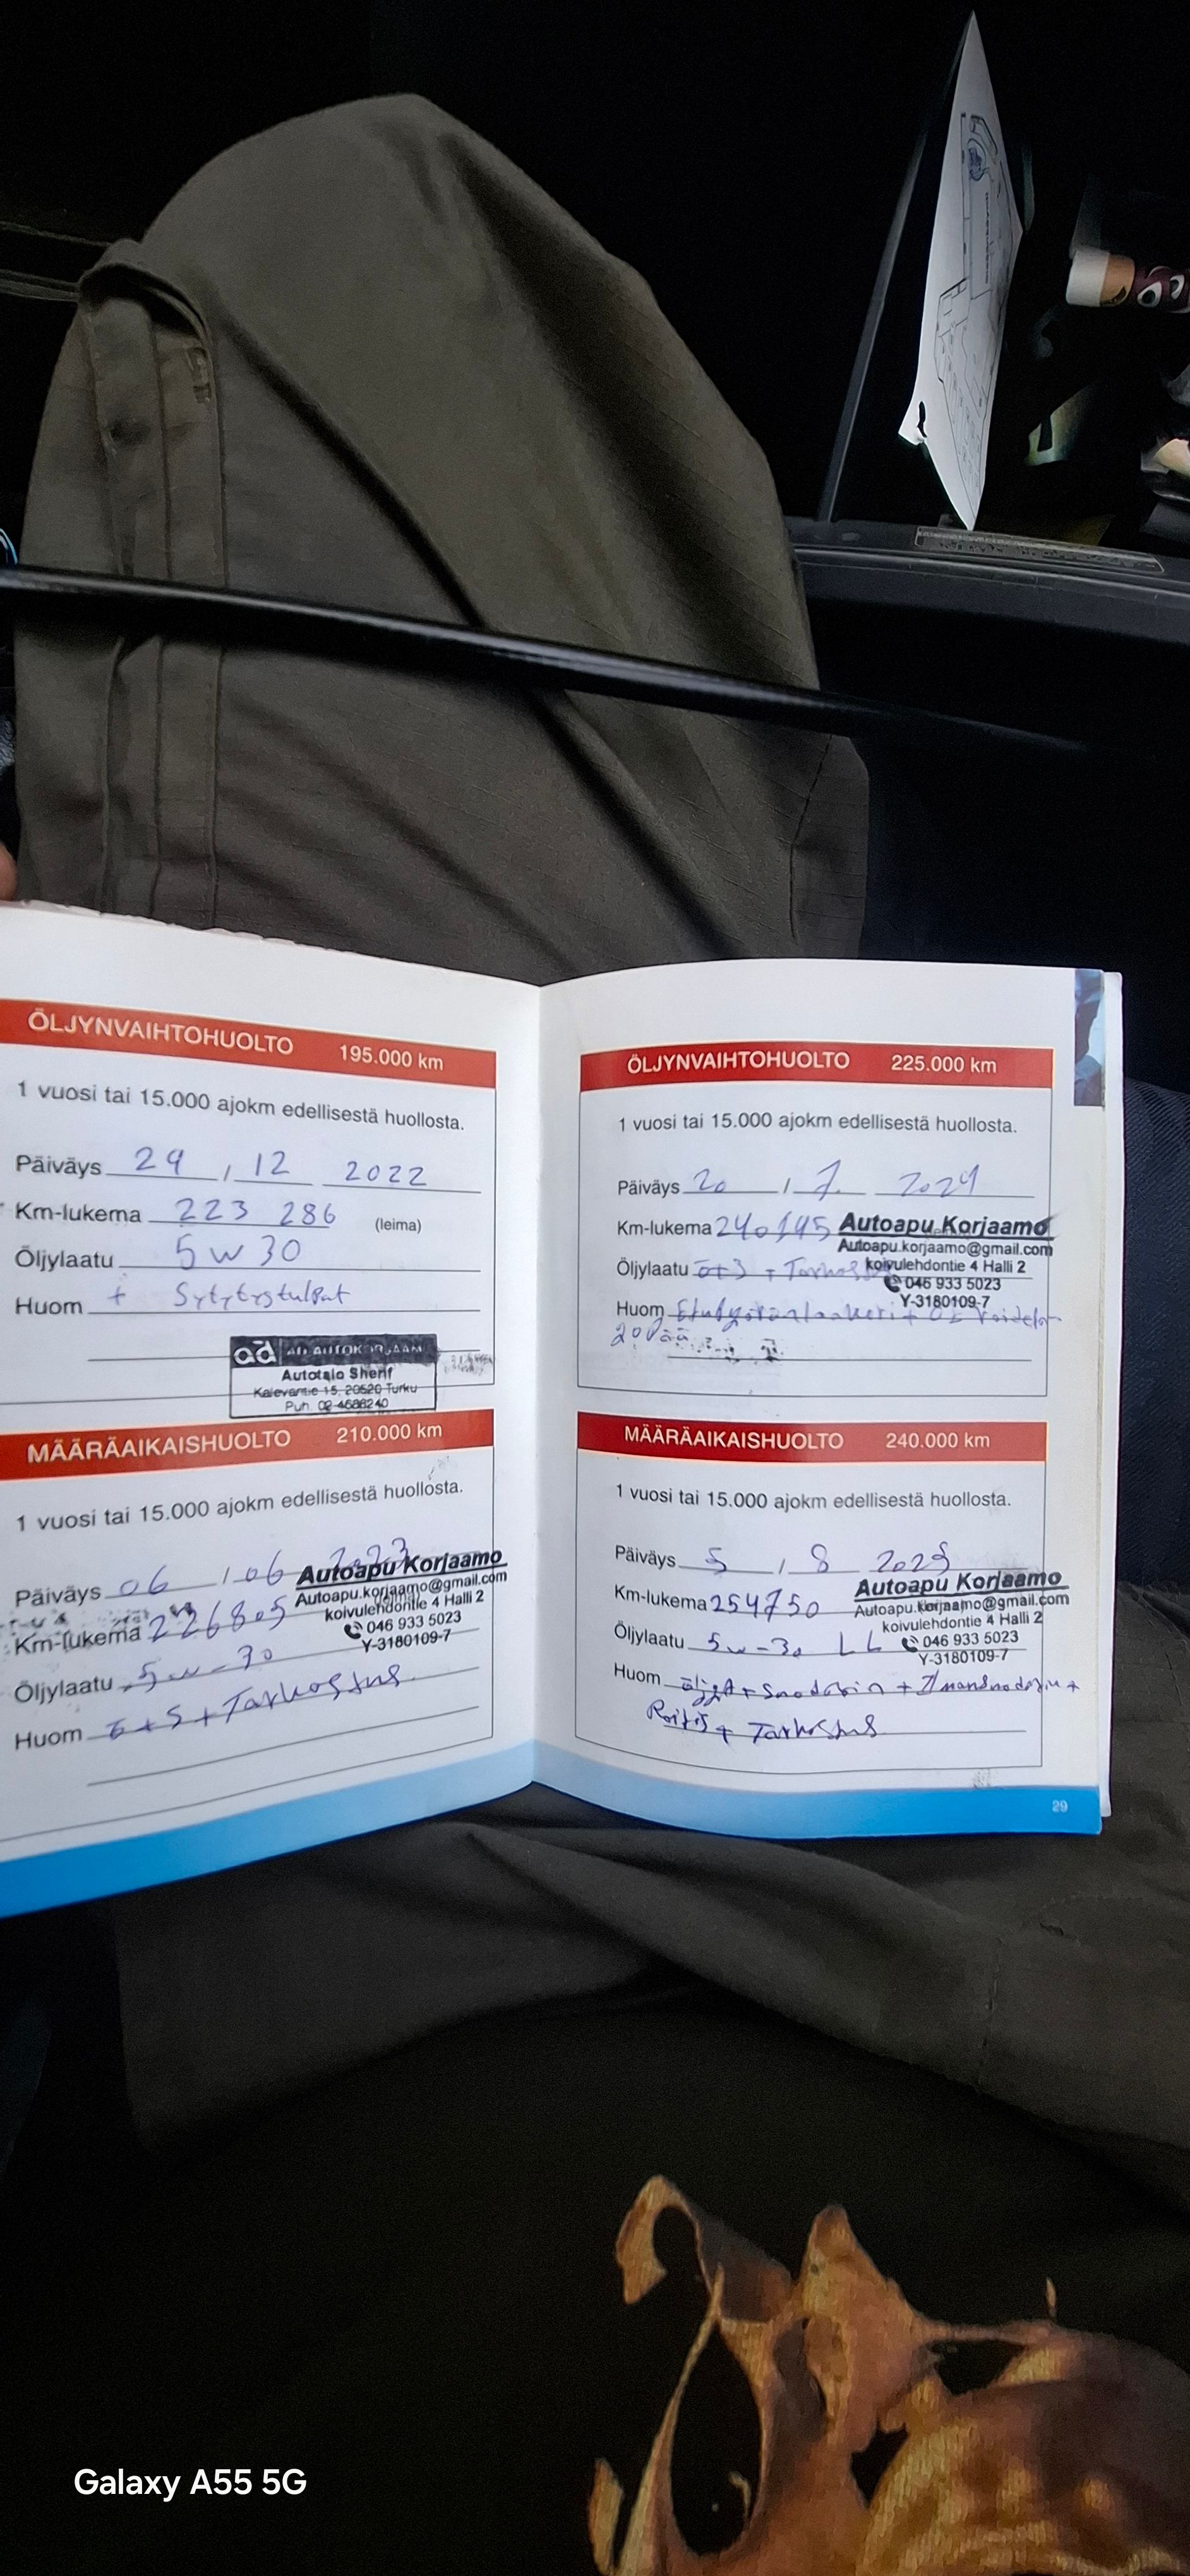 ÖLJYNVAIHTOHUOLTO 195.000 km
1 vuosi tai 15.000 ajokm edellisestä huollosta.
Päiväys 29 / 12 2022
Km-lukema 223 286 (leima)
Öljylaatu 5W30
Huom + Sytytystulpat
ad AD-AUTOKORJAAMO
Autotalo Sherif
Kalevantie 15, 20520 Turku
Puh. 02-4688240
MÄÄRÄAIKAISHUOLTO 210.000 km
1 vuosi tai 15.000 ajokm edellisestä huollosta.
Päiväys 06 / 06 2023
Autoapu Korjaamo
Autoapu.korjaamo@gmail.com
koivulehdontie 4 Halli 2
046 933 5023
Y-3180109-7
Km-lukema 226805
Öljylaatu 5w-30
Huom ö+s+Tarkastus
ÖLJYNVAIHTOHUOLTO 225.000 km
1 vuosi tai 15.000 ajokm edellisestä huollosta.
Päiväys 20 / 7. 2024
Km-lukema 240145
Autoapu Korjaamo
Autoapu.korjaamo@gmail.com
koivulehdontie 4 Halli 2
046 933 5023
Y-3180109-7
Öljylaatu
Huom
MÄÄRÄAIKAISHUOLTO 240.000 km
1 vuosi tai 15.000 ajokm edellisestä huollosta.
Päiväys 5 / 8 2025
Km-lukema 254750
Autoapu Korjaamo
Autoapu.korjaamo@gmail.com
koivulehdontie 4 Halli 2
046 933 5023
Y-3180109-7
Öljylaatu 5w-30 LL
Huom
+ Tarkastus
29
Galaxy A55 5G